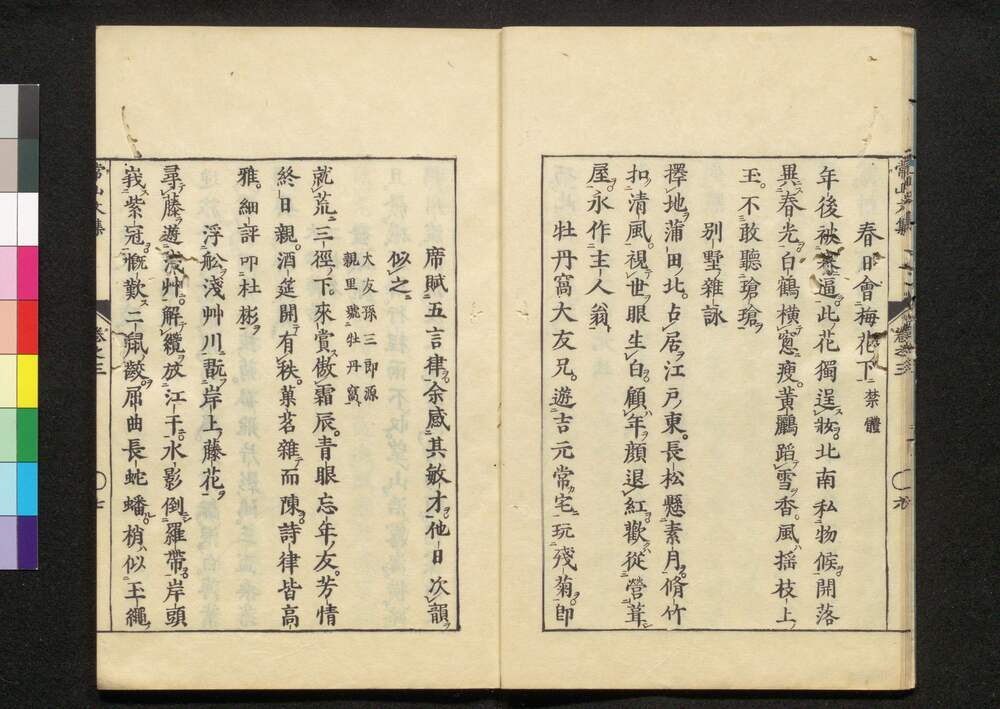 春日會梅花下 禁體
年後被寒逼此花獨逞妝北南私物候開落
異春光白鶴橫窓瘦黃鸝蹈雪香風搖枝上
玉不敢聽瑲瑲
別墅雜詠
擇地蒲田北占居江戸東長松懸素月脩竹
扣清風視世眼生白顧年顏退紅歡從營葺
屋永作主人翁
牡丹窩大友兄遊吉元常宅玩殘菊即
席賦五言律余感其敏才他日次韻
似之 大友孫三郎源親里號牡丹窩
就荒三徑下來賞傲霜辰青眼忘年友芳情
終日親酒筵開有秩菓茗雜而陳詩律皆高
雅細評叩杜彬
浮舩淺艸川翫岸上藤花
尋藤遊淺艸解纜放江干水影倒羅帶岸頭
峩紫冠慨歎二鼠齩屈曲長蛇蟠梢似玉繩
常山文集 卷之三 七